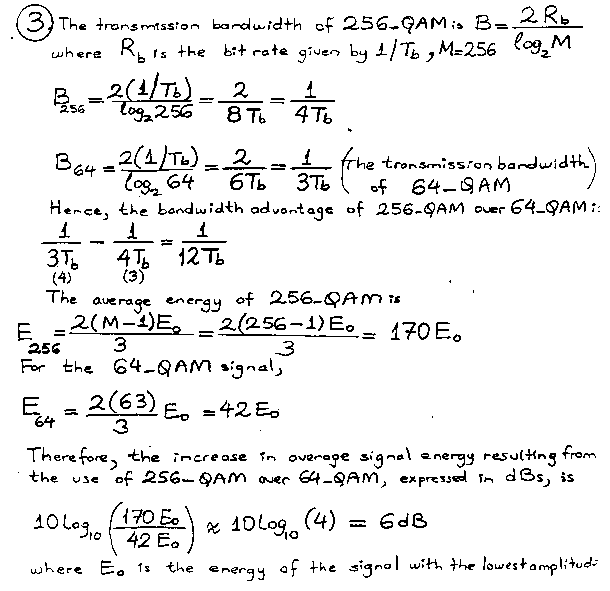 ③ The transmission bandwidth of 256-QAM is B = 2 R_b / log₂ M
where R_b is the bit rate given by 1/T_b, M=256
B_256 = 2(1/T_b) / log₂ 256 = 2 / 8T_b = 1 / 4T_b
B_64 = 2(1/T_b) / log₂ 64 = 2 / 6T_b = 1 / 3T_b (The transmission bandwidth of 64-QAM)
Hence, the bandwidth advantage of 256-QAM over 64-QAM is
1 / 3T_b (4) - 1 / 4T_b (3) = 1 / 12T_b
The average energy of 256-QAM is
E_256 = 2(M-1)E₀ / 3 = 2(256-1)E₀ / 3 = 170 E₀
For the 64-QAM signal,
E_64 = 2(63) / 3 E₀ = 42 E₀
Therefore, the increase in average signal energy resulting from
the use of 256-QAM over 64-QAM, expressed in dBs, is
10 Log₁₀ (170 E₀ / 42 E₀) ≈ 10 Log₁₀ (4) = 6 dB
where E₀ is the energy of the signal with the lowest amplitud